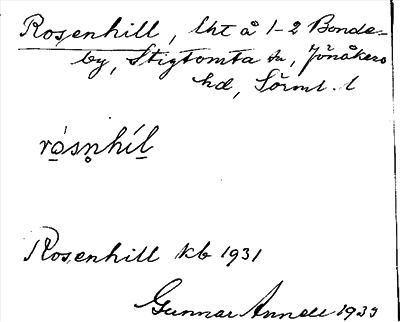 Rosenhill, lht å 1-2 Bonde-
by, Stigtomta sn, Jönåkers
hd, Sörml. l
rò̱sṇhíl̲
Rosenhill kb 1931
Gunnar Annell 1933